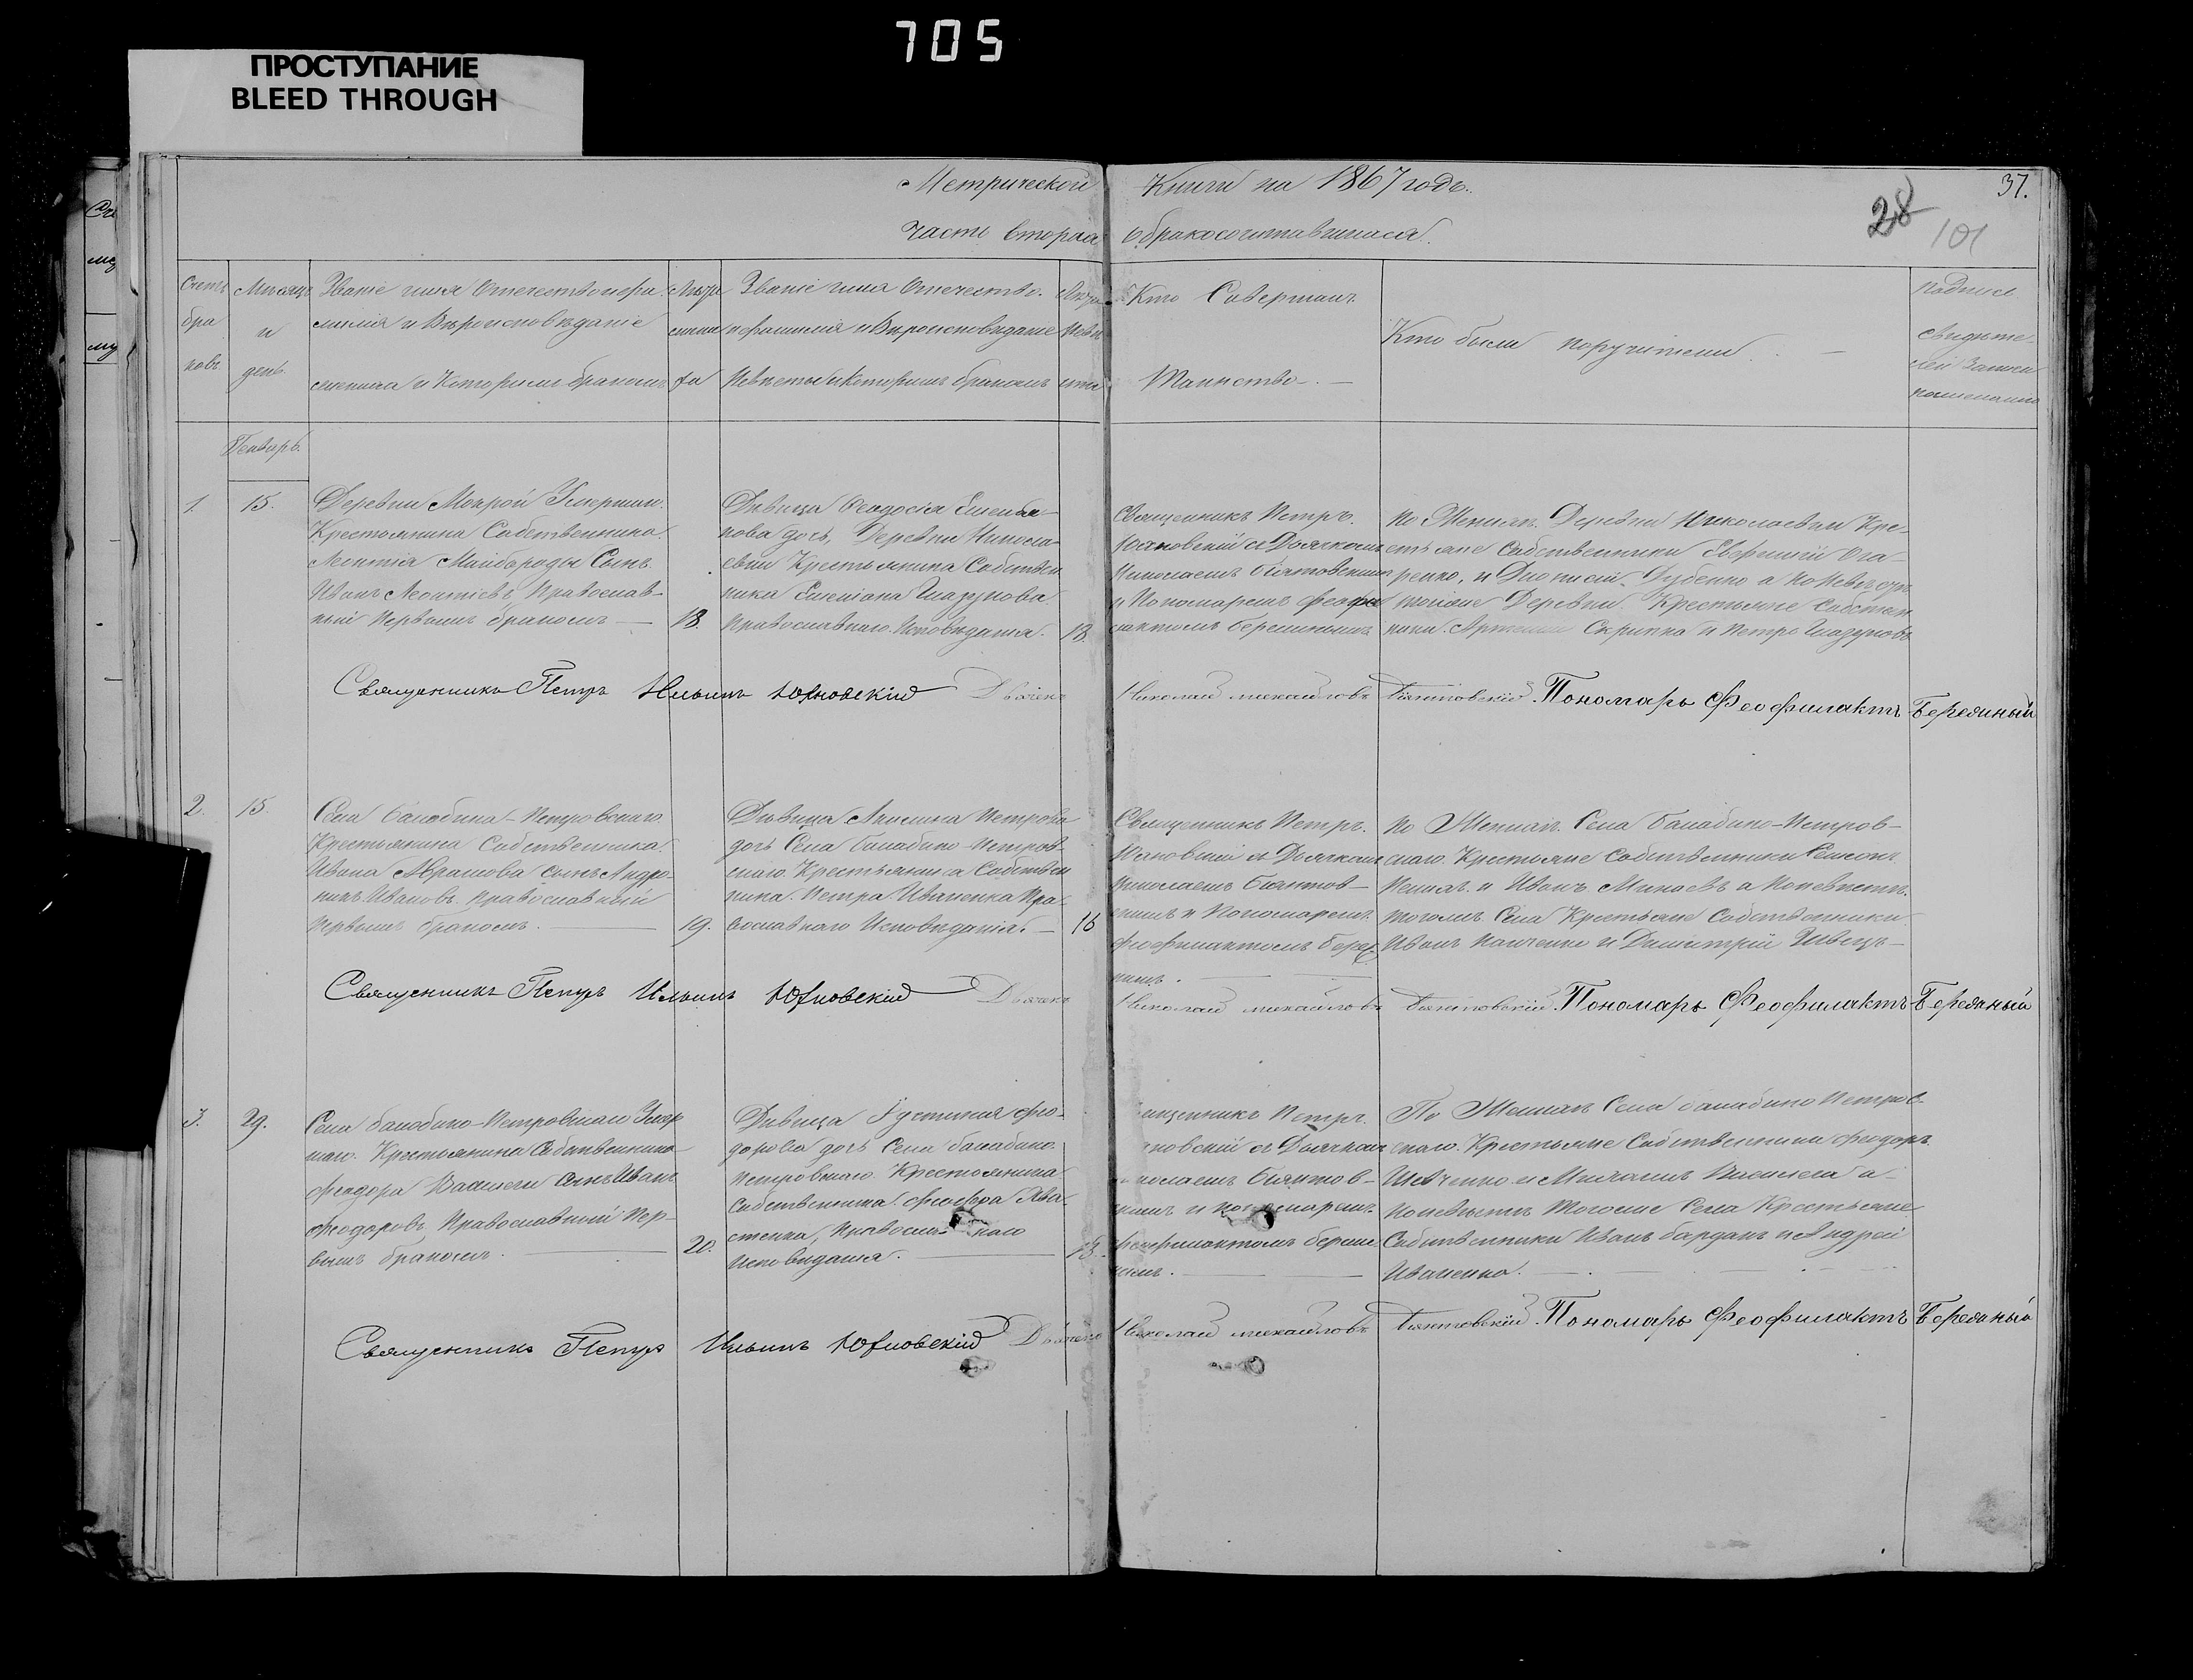 705
ПРОСТУПАНИЕ
BLEED THROUGH
Метрической Книги на 1867 годъ.
37.
28
101
Часть вторая о бракосочитавшихся.
Счетъ
бра
ковъ
Мѣсяцъ
и
день.
Званіе имя Отечество и фа
милія и Вѣроисповѣданіе
жениха и Которымъ бракомъ
Званіе имя Отечество.
и фамилія и Вѣроисповѣданіе
Невѣсты и Которымъ бракомъ
Кто Совершалъ
Таинство. —
Кто были поручители. —
подпись
свидѣте
лей записи
1. 15.
Деревни Мокрой
Крестьянина Собственника
Леонтія Майбороды Сынъ
Иванъ Леонтіевъ, Православ-
ный Первымъ бракомъ — 18.
Дѣвица Феодосія Емелья-
нова дочь, Деревни Никола-
евки Крестьянина Собствен
ника Емеліана Шазунова
Православнаго Исповѣданія. 18.
Священникъ Петръ
Юхновскій съ Дьячкомъ
Николаемъ Біятовскимъ
и Пономаремъ Феофи
лактомъ
По Жениху Деревни Николаевки Кре-
стьяне Собственники
ренко, и Діонисій Дубенко а по Невѣстѣ
Деревни Крестьяне Собствен
ники Скрипка и Петръ Шазуновъ
Священникъ Петръ Ильинъ Юхновскій Дьячекъ Николай Михайловъ Біятовскій. Пономарь Феофилактъ
2. 15.
Села Балабина-Петровскаго
Крестьянина Собственника
Ивана Абрамова сынъ Андро-
никъ Ивановъ православный
первымъ бракомъ. — 19.
Дѣвица Петрова
дочь Села Балабино-Петров-
скаго Крестьянина Собствен
ника Петра Иваненка Пра-
вославнаго Исповѣданія. — 16
Священникъ Петръ
Юхновскій съ Дьячкомъ
Николаемъ Біятов-
скимъ и Пономаремъ
Феофилактомъ
нымъ.
По Жениху Села Балабино-Петров-
скаго Крестьяне Собственники
и Иванъ Миновъ а по невѣстѣ
тогожъ Села Крестьяне Собственники
Иванъ и Димитрій Швецъ —
Священникъ Петръ Ильинъ Юхновскій Дьячекъ Николай Михайловъ Біятовскій. Пономарь Феофилактъ
3. 29.
Села Балабино-Петровскаго
Крестьянина Собственника
Феодора Василеги сынъ Иванъ
Феодоровъ, Православный Пер-
вымъ бракомъ. — 20.
Дѣвица Іустинія Фео-
дорова дочь Села Балабино
Петровскаго Крестьянина
Собственника Феодора
Православнаго
Исповѣданія. — 18.
Священникъ Петръ
Юхновскій съ Дьячкомъ
Николаемъ Біятов-
скимъ и Пономаремъ
Феофилактомъ
нымъ. —
По Жениху Села Балабино Петров-
скаго Крестьяне Собственники Феодоръ
Шевченко и Михаилъ Василега а
по невѣстѣ тогоже Села Крестьяне
Собственники Иванъ Барданъ и Андрей
Иваненко. —
Священникъ Петръ Ильинъ Юхновскій Дьячекъ Николай Михайловъ Біятовскій. Пономарь Феофилактъ